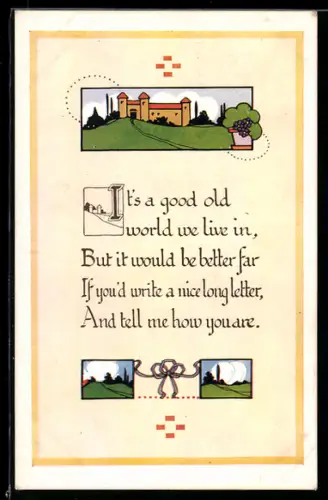 It's a good old
world we live in,
But it would be better far
If you'd write a nice long letter,
And tell me how you are.